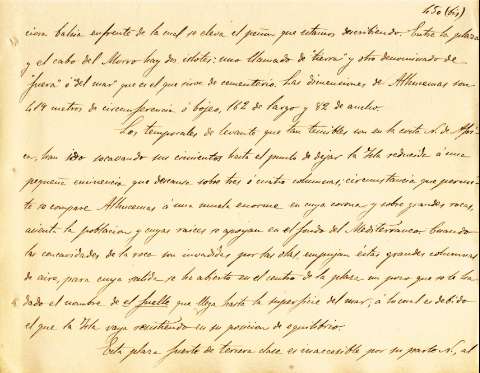 450 (bis)
ciosa bahia enfrente de la cual se eleva el peñon que estamos describiendo. Entre la plaza
y el cabo del Morro hay dos islotes: uno llamado de "tierra" y otro denominado de
"fuera" ó del mar" que es el que sirve de cementerio. Las dimensiones de Alhucemas son
419 metros de circunferencia ó bojeo, 162 de largo y 82 de ancho.
Los temporales de levante que tan temibles son en la costa N. de Afri-
ca, han ido socavando sus cimientos hasta el punto de dejar la Isla reducida á una
pequeña eminencia que descansa sobre tres ó cuatro columnas; circunstancia que permi-
te se compare Alhucemas á una muela enorme en cuya corona y sobre grandes rocas,
asienta la poblacion y cuyas raices se apoyan en el fondo del Mediterraneo. Cuando
las concavidades de la roca son invadidas por las olas, empujan éstas grandes columnas
de aire, para cuya salida se ha abierto en el centro de la plaza un pozo que se le ha
dado el nombre de el fuelle que llega hasta la superficie del mar, á lo cual es debido
el que la Isla vaya resistiendo en su posicion de equilibrio.
Esta plaza fuerte de tercera clase es inaccesible por su parte N., al